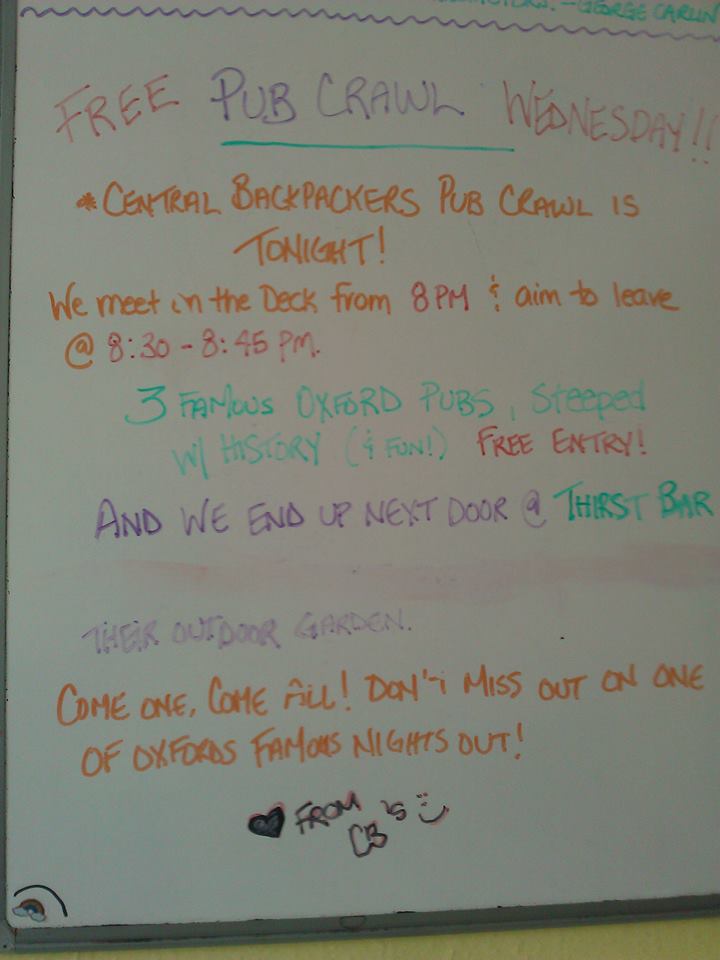 —GEORGE CARLIN
FREE PUB CRAWL WEDNESDAY!!
*CENTRAL BACKPACKERS PUB CRAWL IS
TONIGHT!
We meet in the Deck from 8PM & aim to leave
@ 8:30 - 8:45 PM.
3 FAMOUS OXFORD PUBS, Steeped
W/ HISTORY (& FUN!) FREE ENTRY!
AND WE END UP NEXT DOOR @ THIRST BAR
THEIR OUTDOOR GARDEN.
COME ONE, COME ALL! DON'T MISS OUT ON ONE
OF OXFORDS FAMOUS NIGHTS OUT!
♥ FROM
CB'S :)